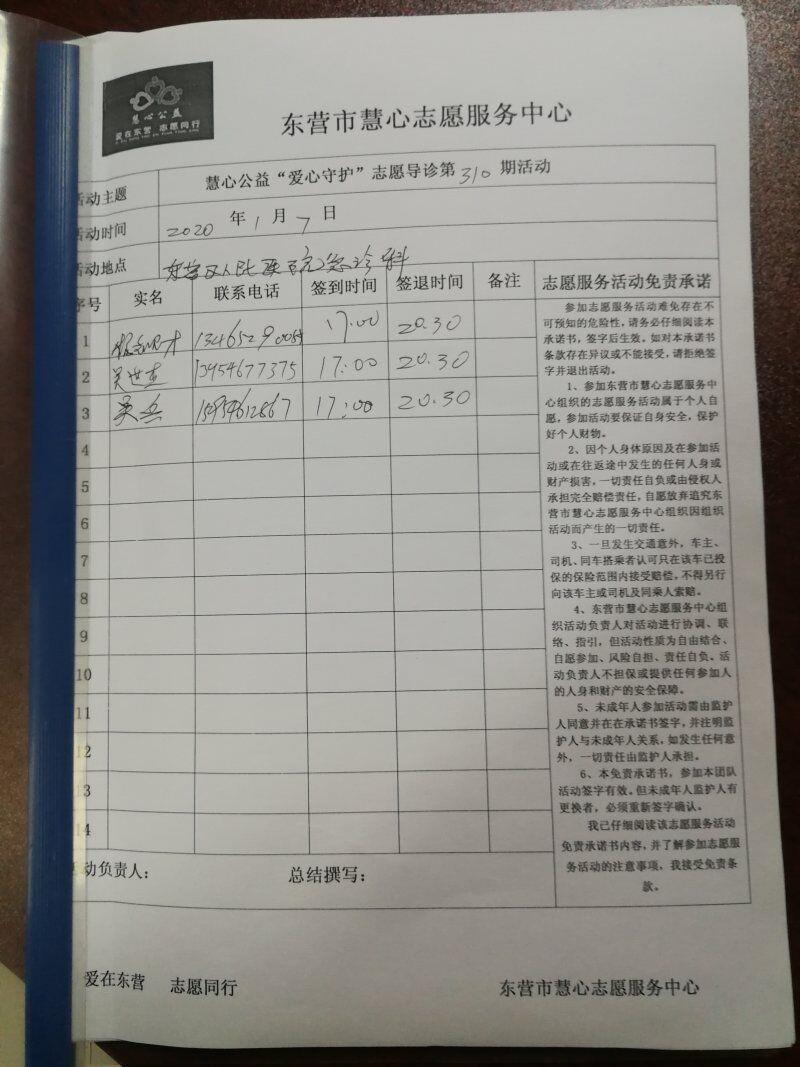 慧心公益
爱在东营 志愿同行
东营市慧心志愿服务中心
活动主题 慧心公益“爱心守护”志愿导诊第310期活动
活动时间 2020年1月7日
活动地点 东营区人民医院急诊科
序号 实名 联系电话 签到时间 签退时间 备注 志愿服务活动免责承诺
1 17:00 20.30
2 吴世杰 13954677375 17:00 20.30
3 吴 17:00 20.30
4
5
6
7
8
9
10
11
12
13
14
参加志愿服务活动难免存在不
可预知的危险性，请务必仔细阅读本
承诺书，签字后生效。如对本承诺书
条款存在异议或不能接受，请拒绝签
字并退出活动。
1、参加东营市慧心志愿服务中
心组织的志愿服务活动属于个人自
愿，参加活动要保证自身安全，保护
好个人财物。
2、因个人身体原因及在参加活
动或在往返途中发生的任何人身或
财产损害，一切责任自负或由侵权人
承担完全赔偿责任，自愿放弃追究东
营市慧心志愿服务中心组织因组织
活动而产生的一切责任。
3、一旦发生交通意外，车主、
司机、同车搭乘者认可只在该车已投
保的保险范围内接受赔偿，不得另行
向该车主或司机及同乘人索赔。
4、东营市慧心志愿服务中心组
织活动负责人对活动进行协调、联
络、指引，但活动性质为自由结合、
自愿参加、风险自担、责任自负。活
动负责人不担保或提供任何参加人
的人身和财产的安全保障。
5、未成年人参加活动需由监护
人同意并在在承诺书签字，并注明监
护人与未成年人关系，如发生任何意
外，一切责任由监护人承担。
6、本免责承诺书，参加本团队
活动签字有效。但未成年人监护人有
更换者，必须重新签字确认。
我已仔细阅读该志愿服务活动
免责承诺书内容，并了解参加志愿服
务活动的注意事项，我接受免责条
款。
活动负责人： 总结撰写：
爱在东营 志愿同行 东营市慧心志愿服务中心